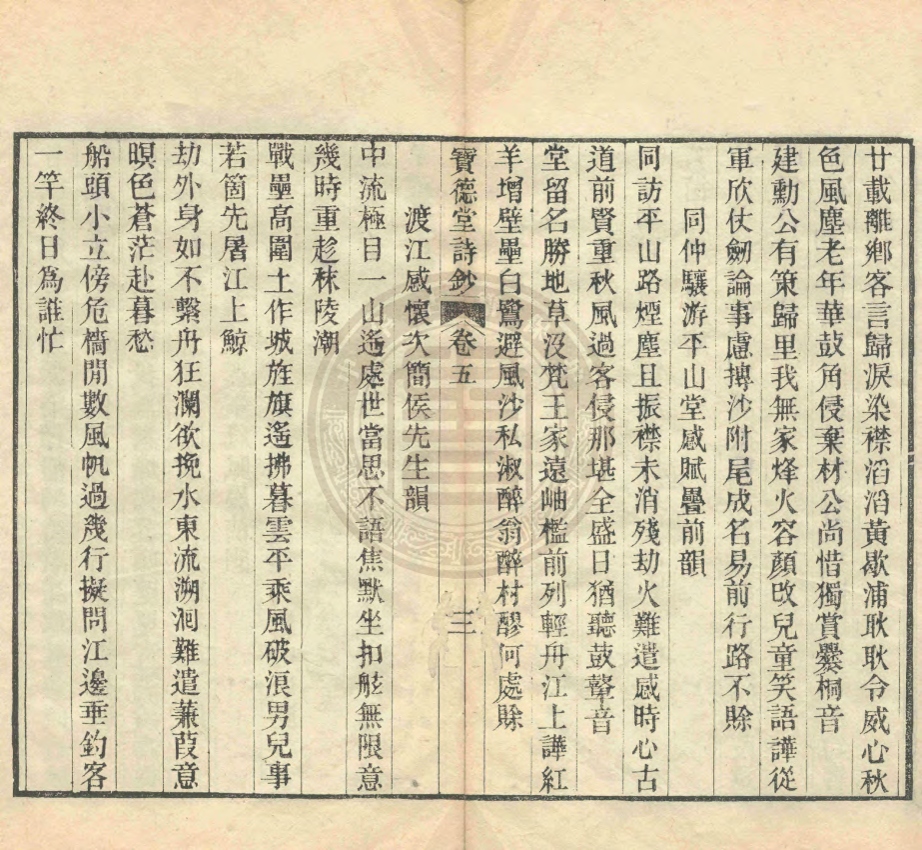 廿載離鄉客言歸淚染襟滔滔黃歇浦耿耿令威心秋
色風塵老年華鼓角侵棄材公尚惜獨賞爨桐音
建勳公有策歸里我無家烽火容顏改兒童笑語譁從
軍欣仗劒論事慮摶沙附尾成名易前行路不賒
同仲驤游平山堂感賦疊前韻
同訪平山路煙塵且振襟未消殘劫火難遣感時心古
道前賢重秋風過客侵那堪全盛日猶聽鼓鼙音
堂留名勝地草没梵王家遠岫檻前列輕舟江上譁紅
羊增壁壘白鷺避風沙私淑醉翁醉村醪何處賒
寶德堂詩鈔 卷五 三
渡江感懷次簡侯先生韻
中流極目一山遙處世當思不語焦默坐扣舷無限意
幾時重趁秣陵潮
戰壘高圍土作城旌旗遙拂暮雲平乘風破浪男兒事
若箇先屠江上鯨
劫外身如不繫舟狂瀾欲挽水東流溯洄難遣蒹葭意
暝色蒼茫赴暮愁
船頭小立傍危檣閒數風帆過幾行擬問江邊垂釣客
一竿終日為誰忙